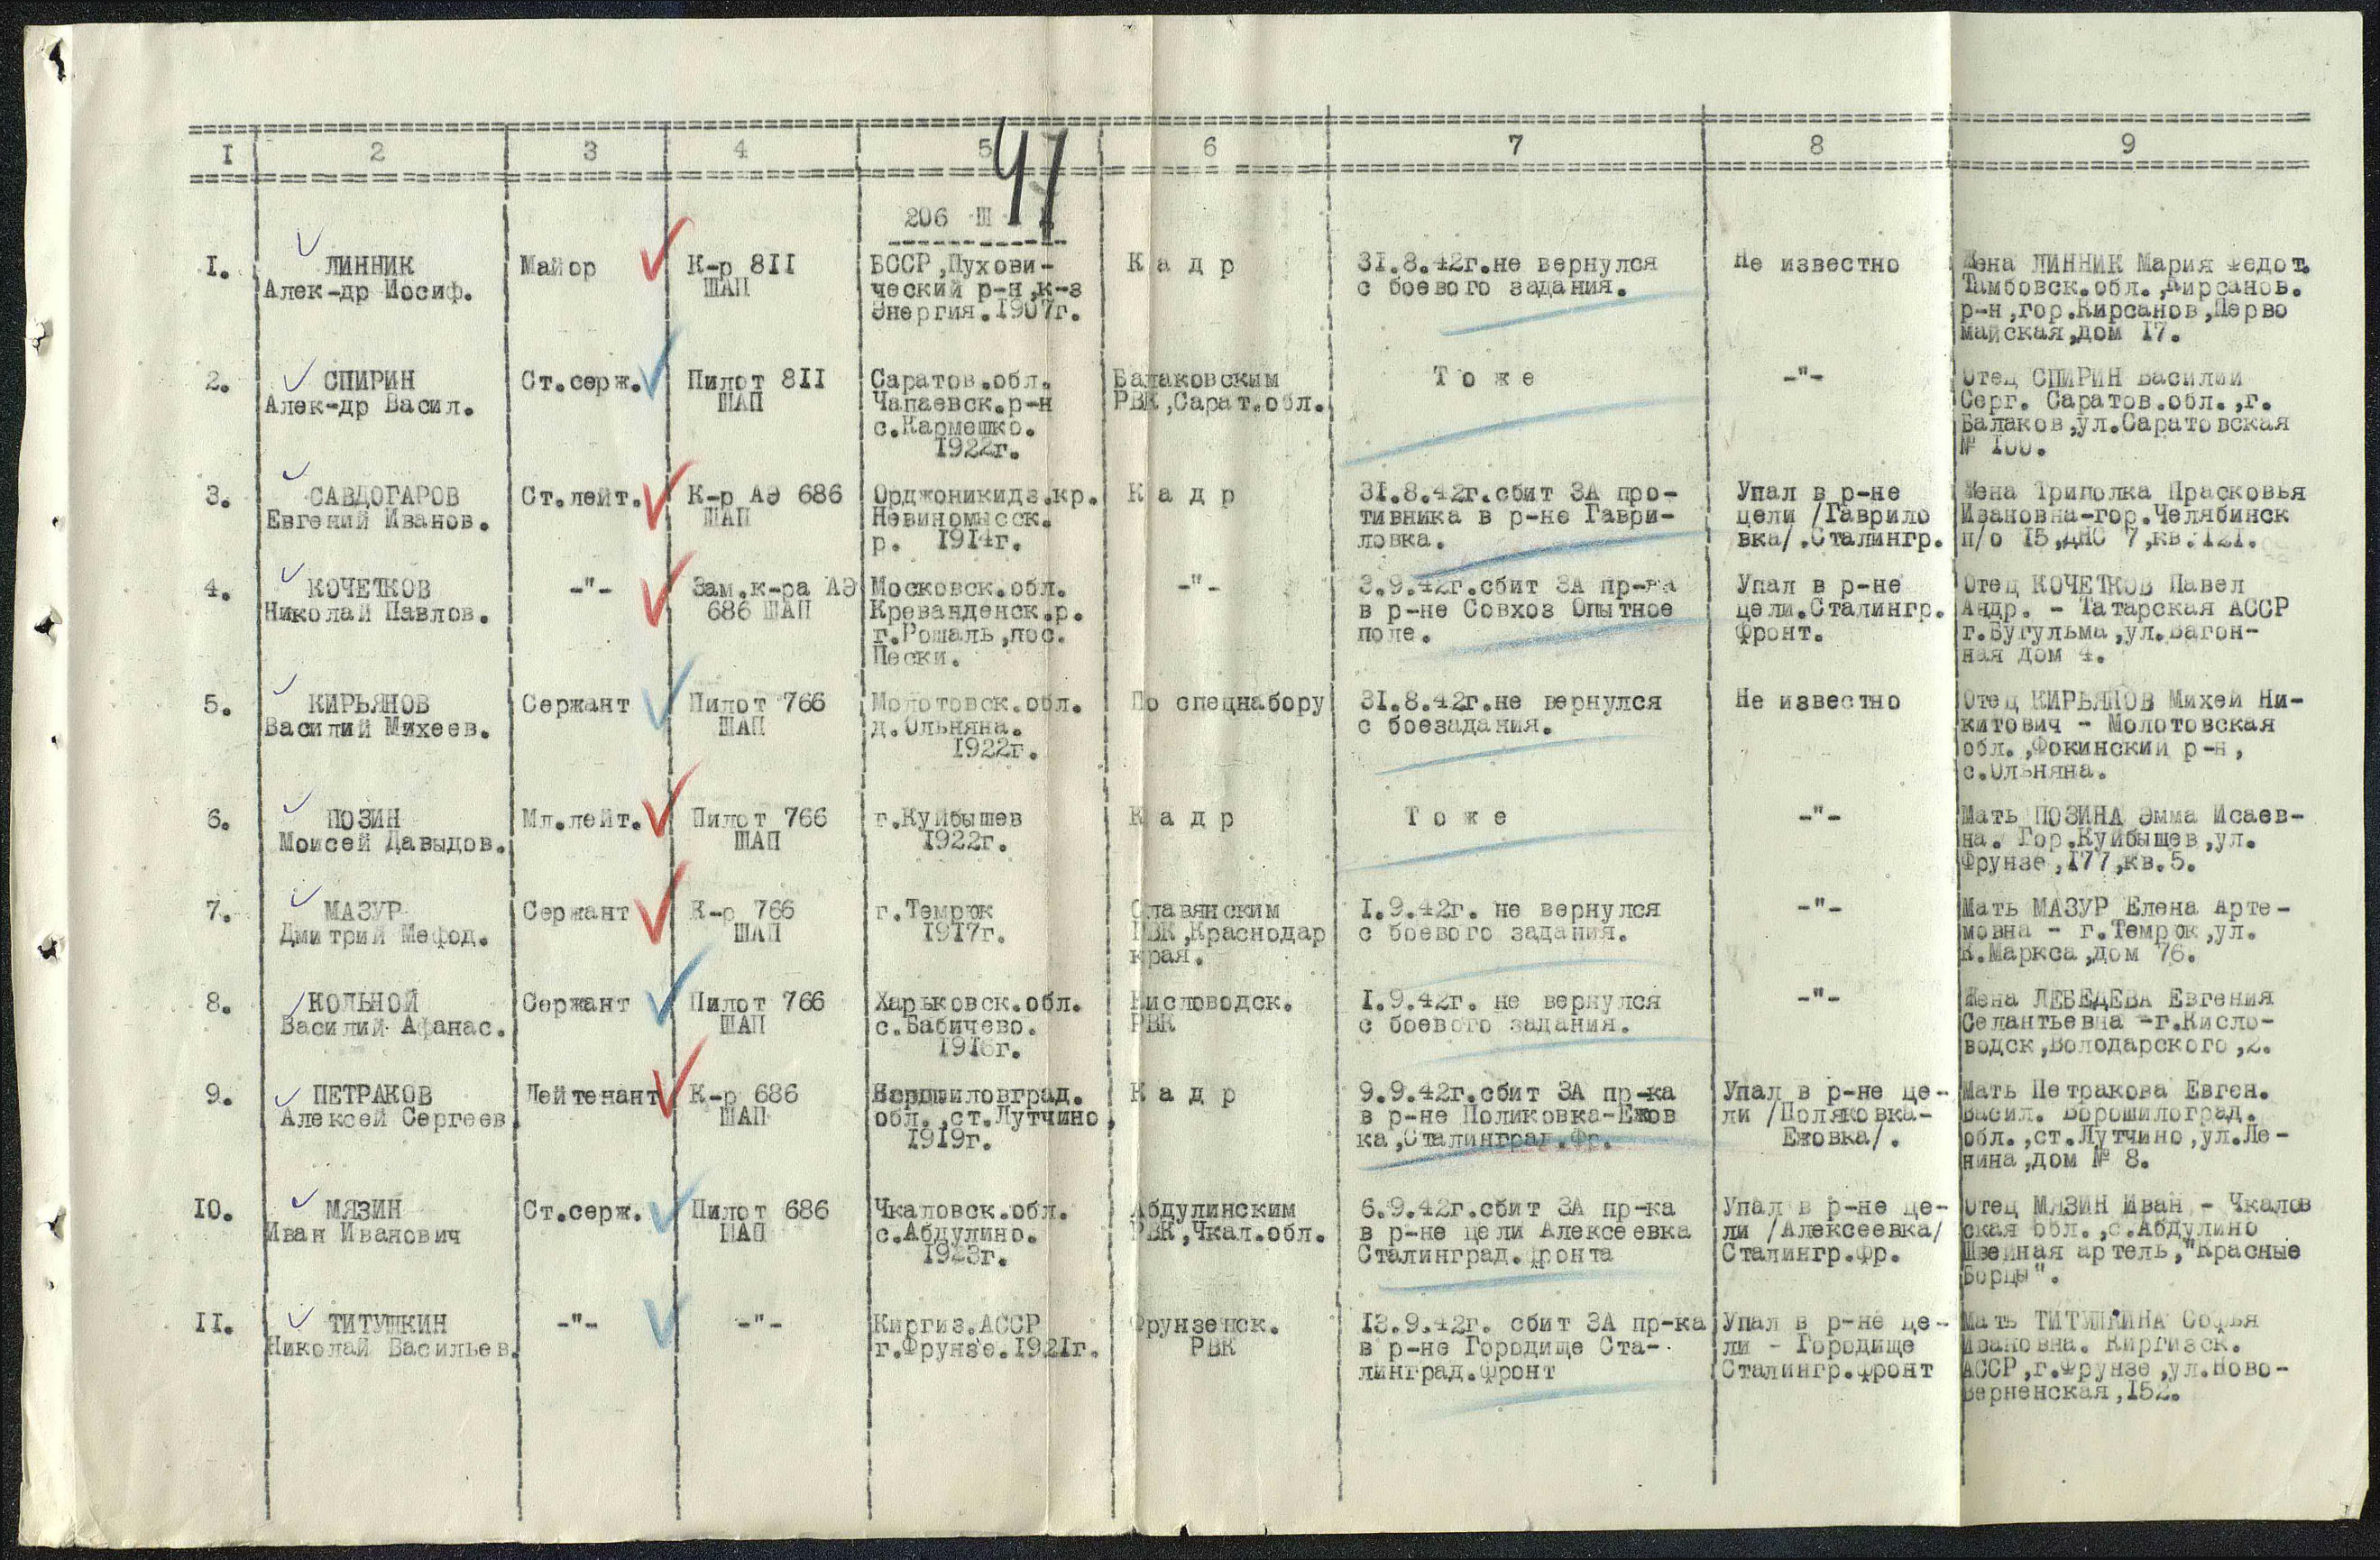 47
I 2 3 4 5 6 7 8 9
206 Ш
I. ЛИННИК Майор К-р 8II БССР,Пухови- К а д р 3I.8.42г.не вернулся Не известно Жена ЛИННИК Мария Федот.
Алек-др Иосиф. ШАП ческий р-н,к-з с боевого задания. Тамбовск.обл.,Кирсанов.
Энергия.I907г. р-н,гор.Кирсанов,Перво
майская,дом I7.
2. СПИРИН Ст.серж. Пилот 8II Саратов.обл. Балаковским Т о ж е -"- Отец СПИРИН Василий
Алек-др Васил. ШАП Чапаевск.р-н РВК,Сарат.обл. Серг. Саратов.обл.,г.
с.Кармешко. Балаков,ул.Саратовская
I922г. № I00.
3. САВДОГАРОВ Ст.лейт. К-р АЭ 686 Орджоникидз.кр. К а д р 3I.8.42г.сбит ЗА про- Упал в р-не Жена Триполка Прасковья
Евгений Иванов. ШАП Невиномысск. тивника в р-не Гаври- цели /Гаврило Ивановна-гор.Челябинск
р. I914г. ловка. вка/.Сталингр. п/о I5,ДНС 7,кв.I2I.
4. КОЧЕТКОВ -"- Зам.к-ра АЭ Московск.обл. -"- 3.9.42г.сбит ЗА пр-ка Упал в р-не Отец КОЧЕТКОВ Павел
Николай Павлов. 686 ШАП Креванденск.р. в р-не Совхоз Опытное цели.Сталингр. Андр. - Татарская АССР
г.Рошаль,пос. поле. Фронт. г.Бугульма,ул.Вагон-
Пески. ная дом 4.
5. КИРЬЯНОВ Сержант Пилот 766 Молотовск.обл. По спецнабору 3I.8.42г.не вернулся Не известно Отец КИРЬЯНОВ Михей Ни-
Василий Михеев. ШАП д.Ольняна. с боезадания. китович - Молотовская
I922г. обл.,Фокинский р-н,
с.Ольняна.
6. ПОЗИН Мл.лейт. Пилот 766 г.Куйбышев К а д р Т о ж е -"- Мать ПОЗИНА Эмма Исаев-
Моисей Давыдов. ШАП I922г. на. Гор.Куйбышев,ул.
Фрунзе,I77,кв.5.
7. МАЗУР Сержант К-р 766 г.Темрюк Славянским I.9.42г. не вернулся -"- Мать МАЗУР Елена Арте-
Дмитрий Мефод. ШАП I9I7г. РВК,Краснодар с боевого задания. мовна - г.Темрюк,ул.
края. К.Маркса,дом 76.
8. КОЛЬНОЙ Сержант Пилот 766 Харьковск.обл. Кисловодск. I.9.42г. не вернулся -"- Жена ЛЕБЕДЕВА Евгения
Василий Афанас. ШАП с.Бабичево. РВК с боевого задания. Селантьевна -г.Кисло-
I9I6г. водск,Володарского,2.
9. ПЕТРАКОВ Лейтенант К-р 686 Ворошиловград. К а д р 9.9.42г.сбит ЗА пр-ка Упал в р-не це- Мать Петракова Евген.
Алексей Сергеев ШАП обл.,ст.Лутчино, в р-не Поликовка-Ежов ли /Поляковка- Васил. Ворошилоград.
I9I9г. ка,Сталинград.Фр. Ежовка/. обл.,ст.Лутчино,ул.Ле-
нина,дом № 8.
I0. МЯЗИН Ст.серж. Пилот 686 Чкаловск.обл. Абдулинским 6.9.42г.сбит ЗА пр-ка Упал в р-не це- Отец МЯЗИН Иван - Чкалов
Иван Иванович ШАП с.Абдулино. РВК,Чкал.обл. в р-не цели Алексеевка ли /Алексеевка/ ская обл.,с.Абдулино
I923г. Сталинград.фронта Сталингр.Фр. Швейная артель,"Красные
Борцы".
II. ТИТУШКИН -"- -"- Киргиз.АССР Фрунзенск. I3.9.42г. сбит ЗА пр-ка Упал в р-не це- Мать ТИТУШКИНА Софья
Николай Васильев. г.Фрунзе.I92Iг. РВК в р-не Городище Ста- ли - Городище Ивановна. Киргизск.
линград.фронт Сталингр.фронт АССР,г.Фрунзе,ул.Ново-
Верненская,I52.